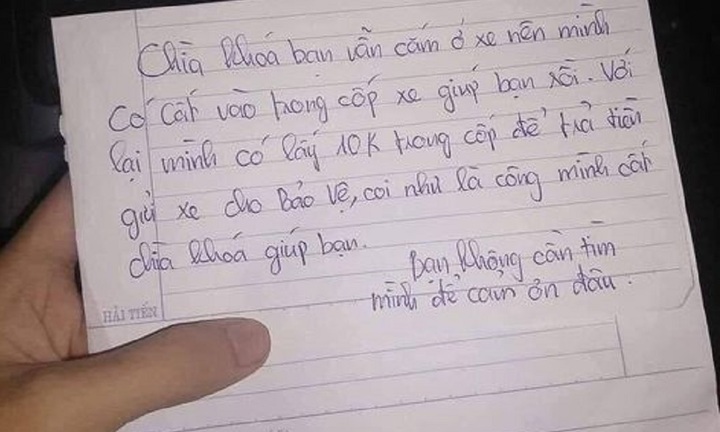 Chìa khoá bạn vẫn cắm ở xe nên mình
có cất vào trong cốp xe giúp bạn rồi. Với
lại mình có lấy 10K trong cốp để trả tiền
gửi xe cho bảo vệ, coi như là công mình cất
chìa khoá giúp bạn.
Bạn không cần tìm
mình để cảm ơn đâu.
HẢI TIẾN